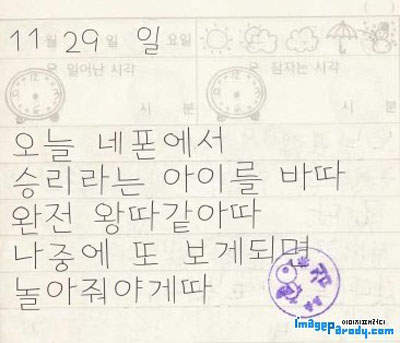 11월 29일 일요일
일어난 시각
잠자는 시각
시 분
시 분
오늘 네폰에서
승리라는 아이를 바따
완전 왕따같아따
나중에 또 보게되며
놀아줘야게따
이미지패러디
ImageParody.com